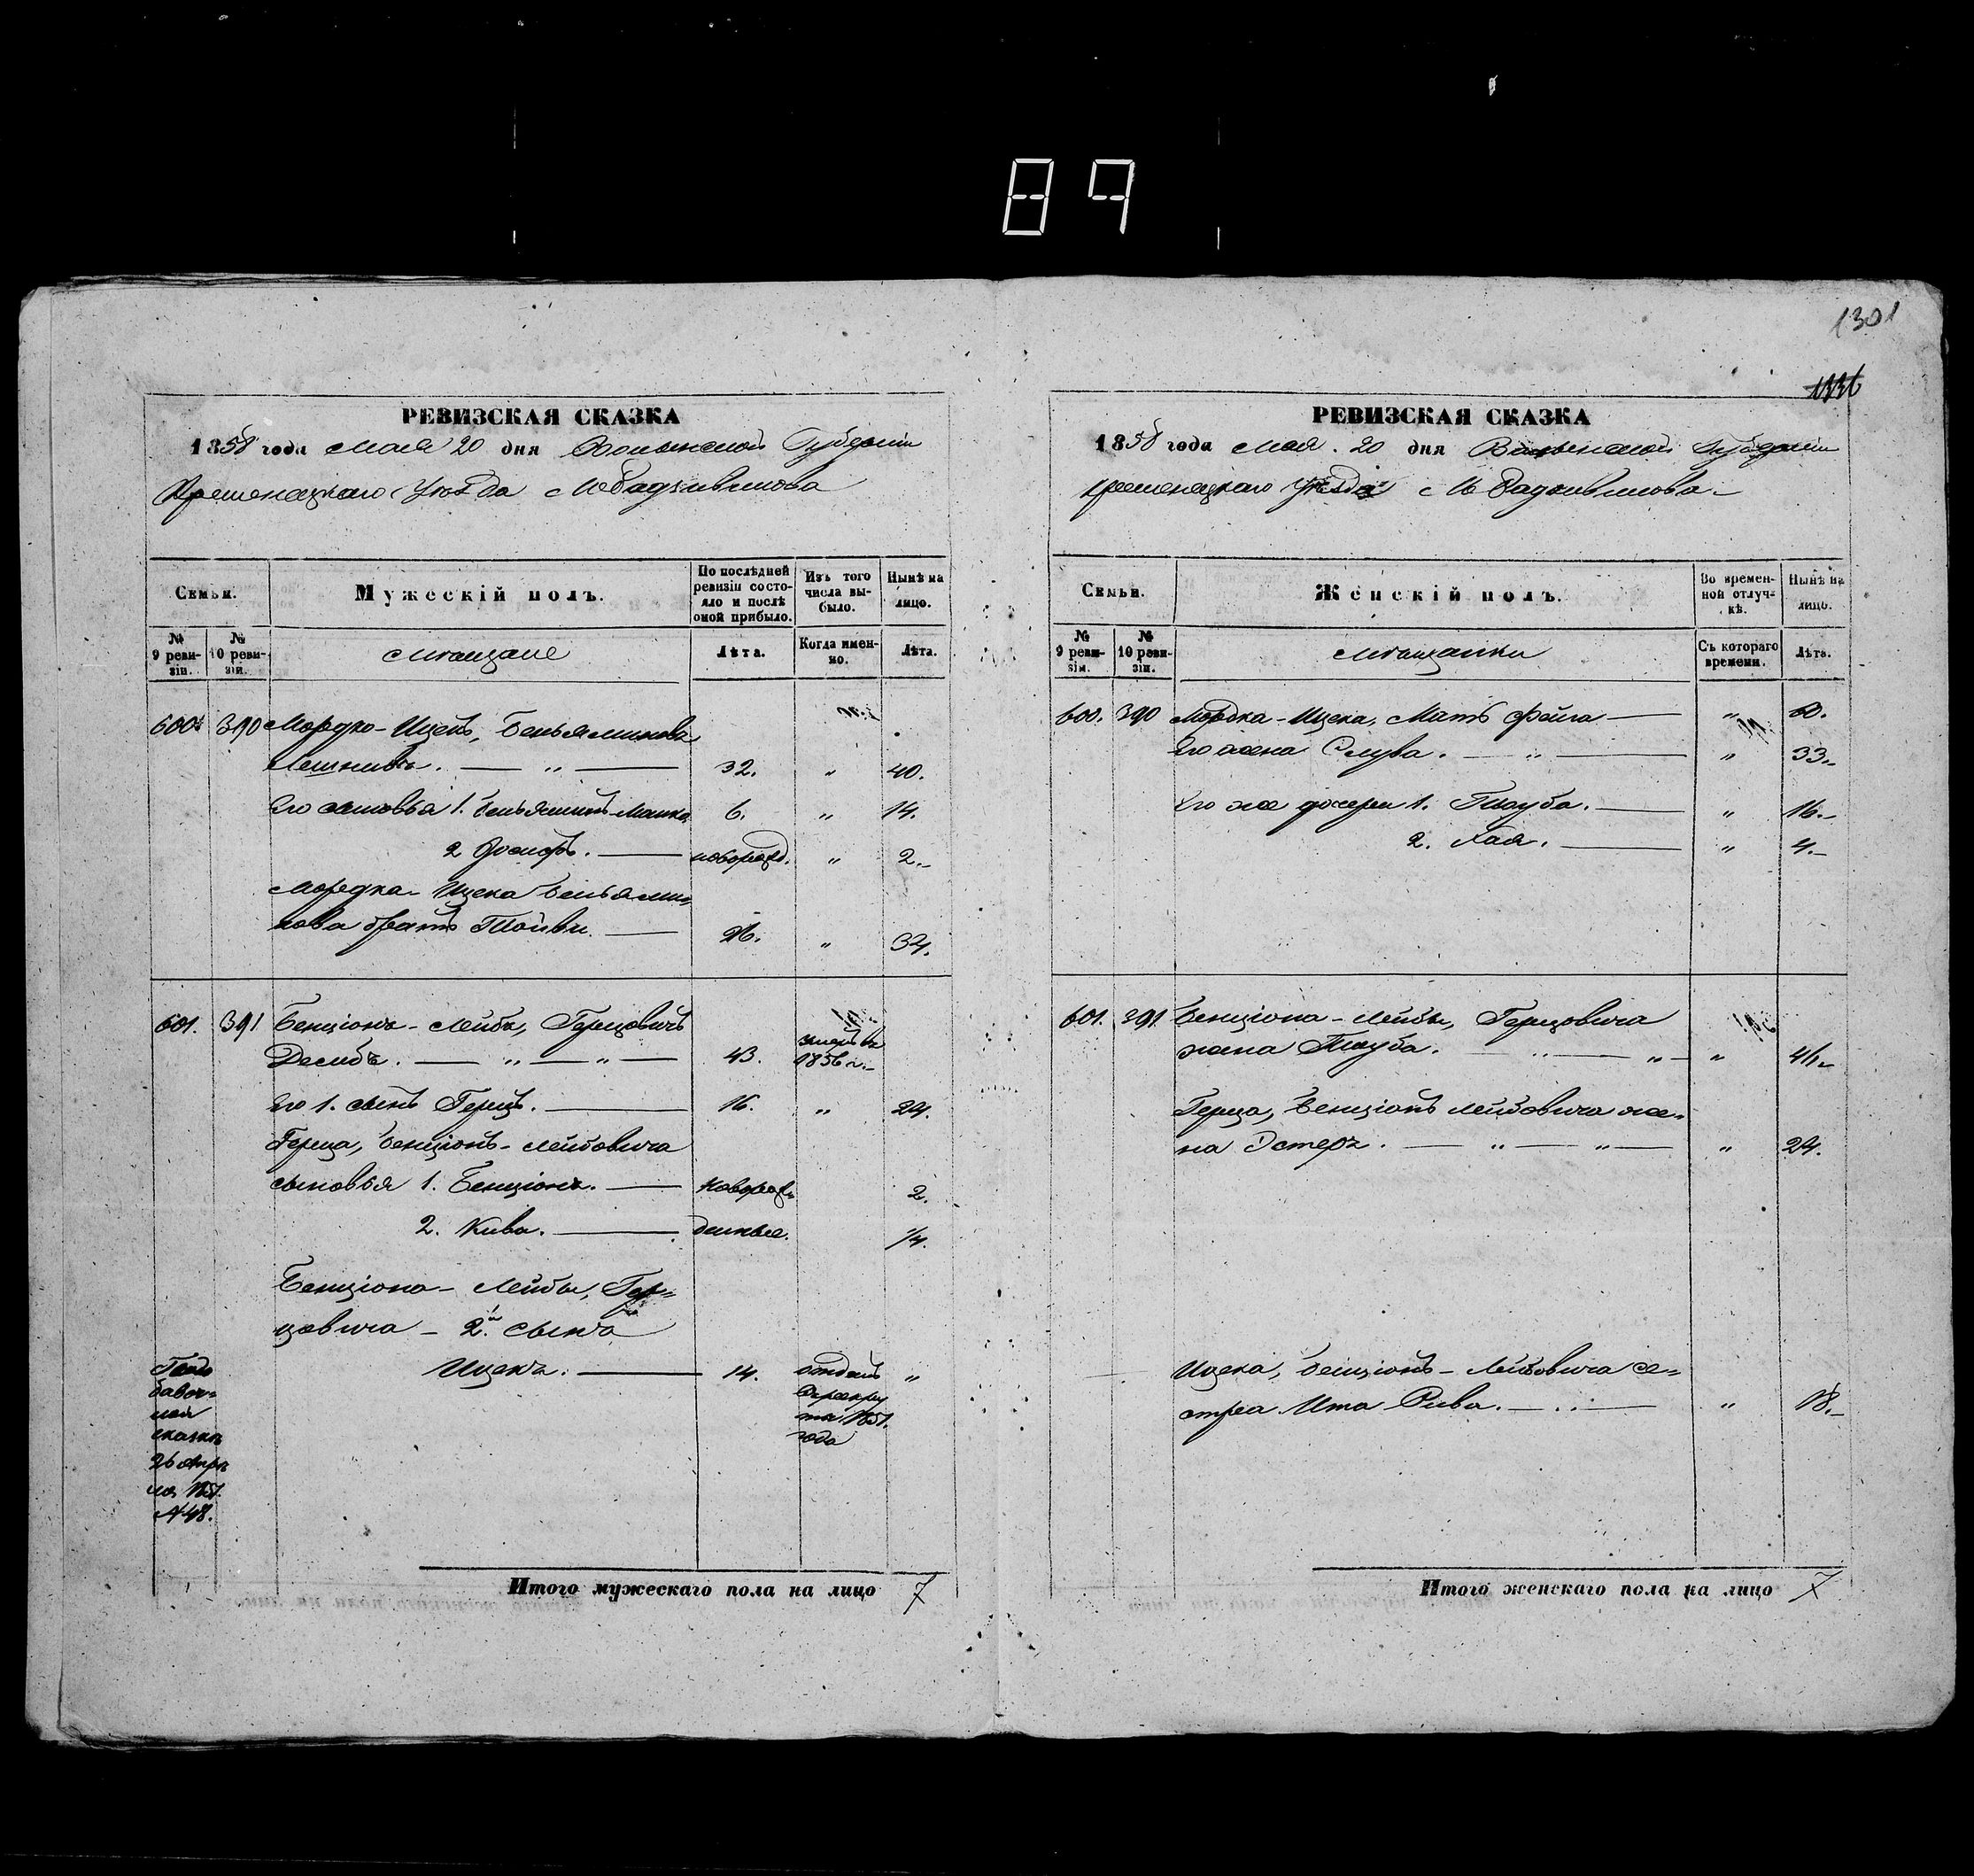 89
1301
РЕВИЗСКАЯ СКАЗКА
1858 года Мая 20 дня Волынской Губерніи
Кременецкаго Уѣзда М Радзивилова
Семьи.
Мужескій полъ.
По послѣдней ревизіи состояло и послѣ оной прибыло.
Изъ того числа выбыло.
Нынѣ на лицо.
№ 9 ревизіи.
№ 10 ревизіи.
Мѣщане
Лѣта.
Когда именно.
Лѣта.
600. 390 Мордко-Ицекъ, Беньяминовъ
Лешнивъ. — " — 32. " 40.
Его сыновья 1. Беньяминъ-Манка 6. " 14.
2 Іосифъ. — новорожд. " 2.
Мордка-Ицека Беньями=
нова братъ Тойви. — 26. " 34.
601. 391 Бенціонъ-Лейба, Герцовичъ
Десибъ. — " — " — 43. умеръ въ 1856 г. 
Его 1. сынъ Герцъ. — 16. " 24.
Герца, Бенціонъ-Лейбовича
сыновья 1. Бенціонъ. — новорож= 2.
2. Кива. — денные. 1/4.
Бенціона-Лейбы, Гер=
цовича - 2й сынъ
Ицекъ. — 14. отданъ "
въ рекру
ты 1851.
года
По до
бавоч=
ной
сказкѣ
26 Апрѣ
ля 1851.
№48.
Итого мужескаго пола на лицо 7
РЕВИЗСКАЯ СКАЗКА
1858 года Мая 20 дня Волынской Губерніи
Кременецкаго Уѣзда М Радзивилова
Семьи.
Женскій полъ.
Во временной отлучкѣ.
Нынѣ на лицо.
№ 9 ревизіи.
№ 10 ревизіи.
Мѣщанки
Съ котораго времени.
Лѣта.
600. 390 Мордка-Ицека, Мать Фейга — " 60.
Его жена Слува. — " — " 33.
Его же дочери 1. Тауба. — " 16.
2. Хая. — " 4.
601. 391. Бенціона-Лейбы, Герцовича
жена Тауба. — " — " — " 46.
Герца, Бенціонъ Лейбовича же=
на Эстеръ. — " — " — " 24.
Ицека, Бенціонъ-Лейбовича се=
стра Ита Рива. — " — " 18.
Итого женскаго пола на лицо 7